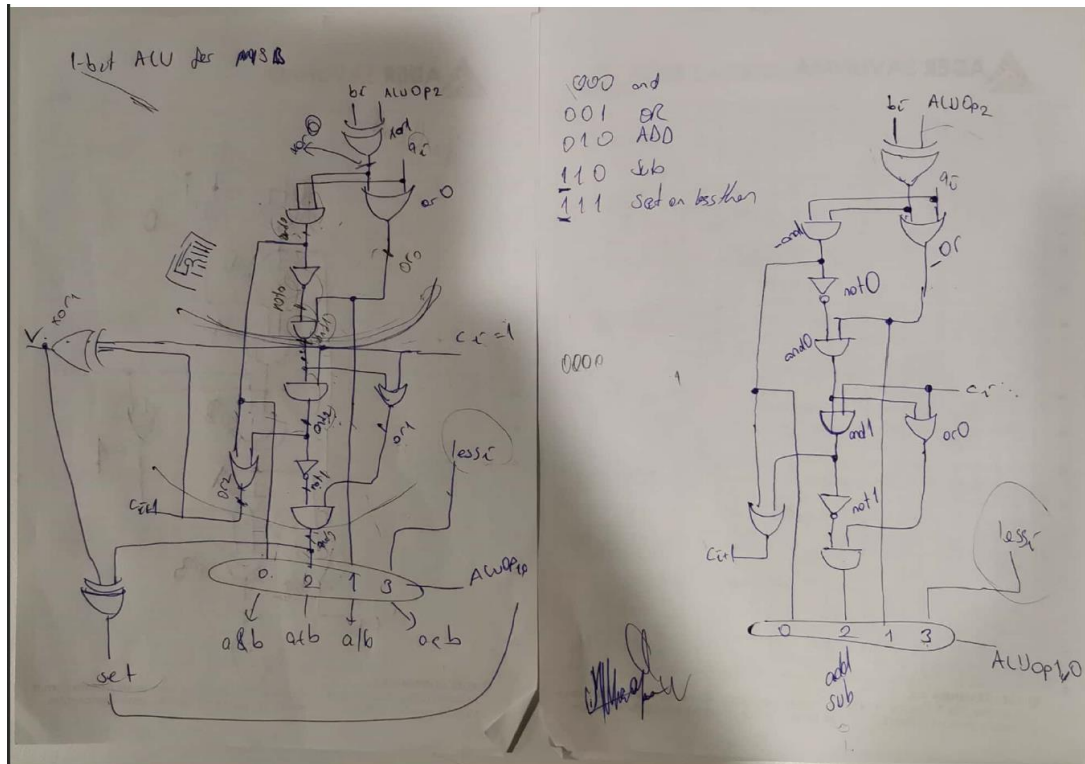 1-bit ALU for MSB
bi ALUOp2
xor0
xor1
ai
or0
and0
or0
not0
and1
xor1
V
ci=1
and2
or1
or2
not1
lessi
ci+1
and3
0 2 1 3
ALUOp1,0
a&b a+b a|b a<b
set
000 and
001 OR
010 ADD
110 sub
111 set on less than
0000
1
bi ALUOp2
ai
and
or
not0
and0
ci
and1
or0
not1
ci+1
lessi
0 2 1 3
ALUOp1,0
add
sub